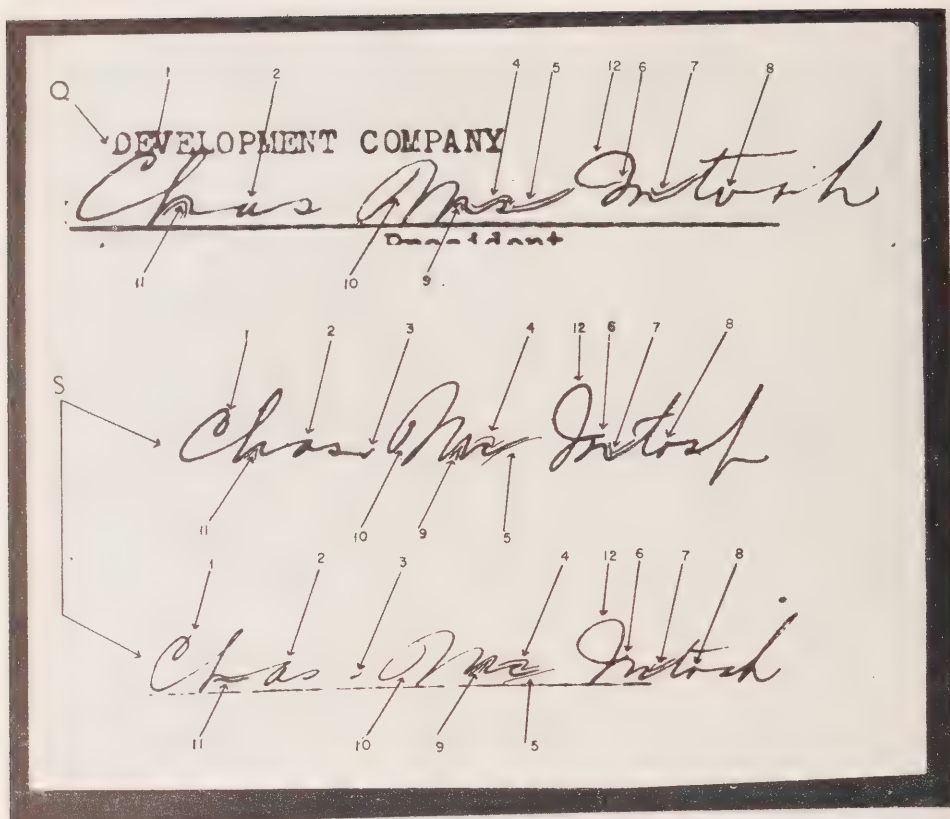 1 2 4 5 12 6 7 8
Q
DEVELOPMENT COMPANY
Chas MacIntosh
President
11 10 9
1 2 3 4 12 6 7 8
S
Chas. MacIntosh
11 10 9 5
1 2 3 4 12 6 7 8
Chas. MacIntosh
11 10 9 5